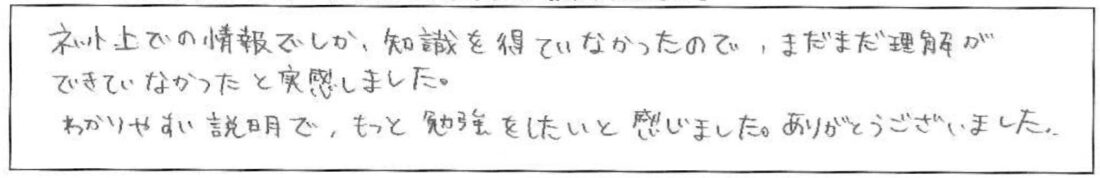 ネット上での情報でしか、知識を得ていなかったので、まだまだ理解が
できていなかったと実感しました。
わかりやすい説明で、もっと勉強をしたいと感じました。ありがとうございました。